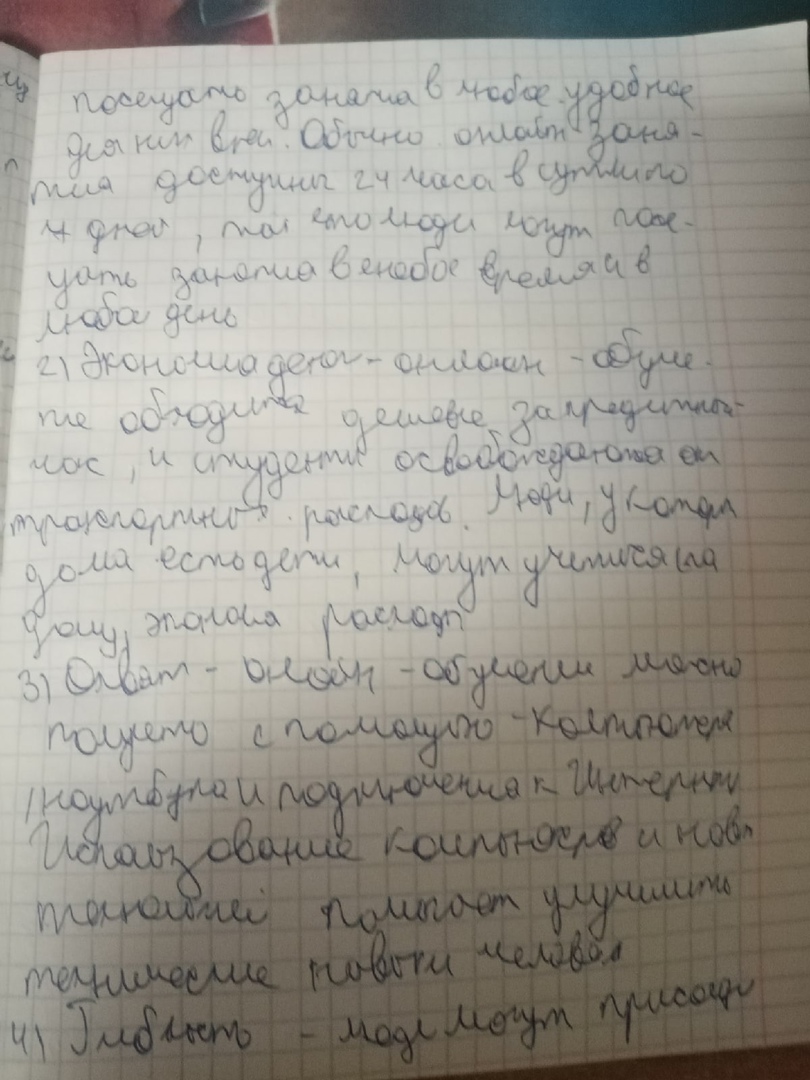 посещать занятия в любое удобное
для них врем. Обычно онлайн заня-
тия доступны 24 часа в сутки по
7 дней, так что люди могут посе-
щать занятия в любое время и в
любое день
2) Экономия денег - онлайн - обуче-
ние обходится дешевле за кредитный
час, и студенты освобождаются от
транспортных расходов. Люди, у котор
дома есть дети, могут учиться на
дому, экономя расходы
3) Охват - онлайн - обучении можно
получить с помощью компьютера
/ноутбука и подключения к Интернету
Использование компьютеров и новых
технологий помогает улучшить
технические навыки человека
4) Гибкость - люди могут присоеди